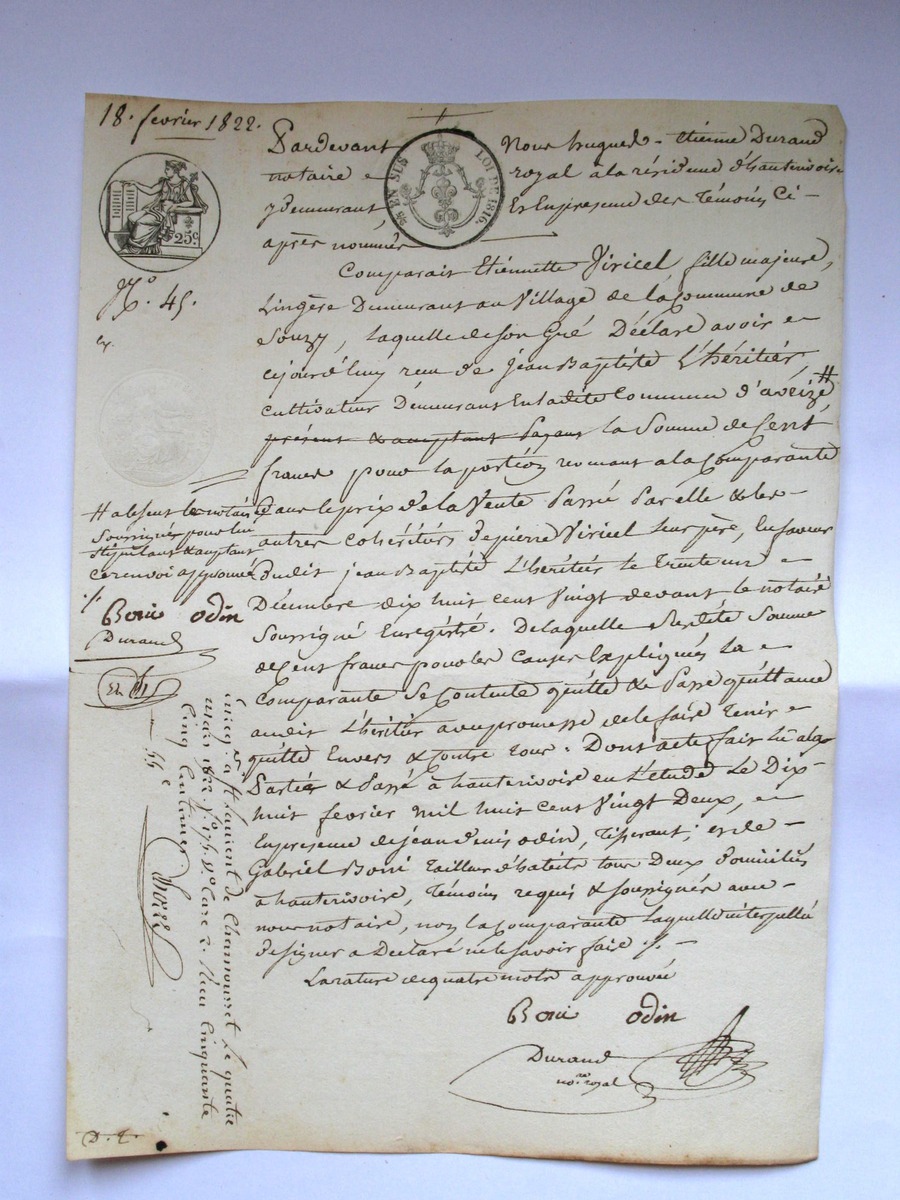 18. fevrier 1822.
Pardevant Nous hugues-étienne Durand
notaire royal à la résidence d'hauterivoire
y Demeurant, Et En presence des Témoins Ci-
après nommés
EN SUS LOI DE 1816.
25c
No. 45.
Comparait Etiennette Viricel, fille majeure,
Lingère Demeurant au Village de la Commune de
Souzy, laquelle de son Gré Déclare avoir
cejourd'huy reçu de Jean Baptiste L'héritier,
cultivateur Demeurant En ladite Commune d'aveize #
présent & acceptant Payant la Somme de Cent
francs pour la portion revenant a la Comparante
dans le prix de la Vente Passé Par elle & les
autres Cohéritiers de pierre Viricel leur père, En faveur
Dudit jean Baptiste L'héritier le trente un
Décembre dix huit cent Vingt devant le notaire
Soussigné Enregistré. De laquelle susdite Somme
de Cent francs pour les Causes Expliquées la
Comparante Se Contente quitte & Passe quittance
audit L'héritier avec promesse de le faire Tenir
quitte Envers & Contre tous. Dont acte fait lu aux
Parties & Passé à hauterivoire en L'étude Le Dix-
huit fevrier Mil huit Cent Vingt Deux,
En presence de jean denis odin, tisserant; et de
Gabriel Boni tailleur d'habits tous Deux domiciliés
a hauterivoire, Témoins requis & soussignés avec
nous notaire, non la Comparante laquelle interpellée
de signer a Declaré ne le savoir faire ./.
La rature de quatre mots approuvée
Boni odin
Durand
no.re royal
# absent le notaire
Soussigné pour lui
stipulant & acceptant
ce renvoi approuvé
./.
Boni odin
Durand
55 c
Enreg. à St Laurent de Chamousset Le quatre
mars 1822 fo. 175 Vo. Case 2. Reçu Cinquante
Cinq Centimes
D. L.